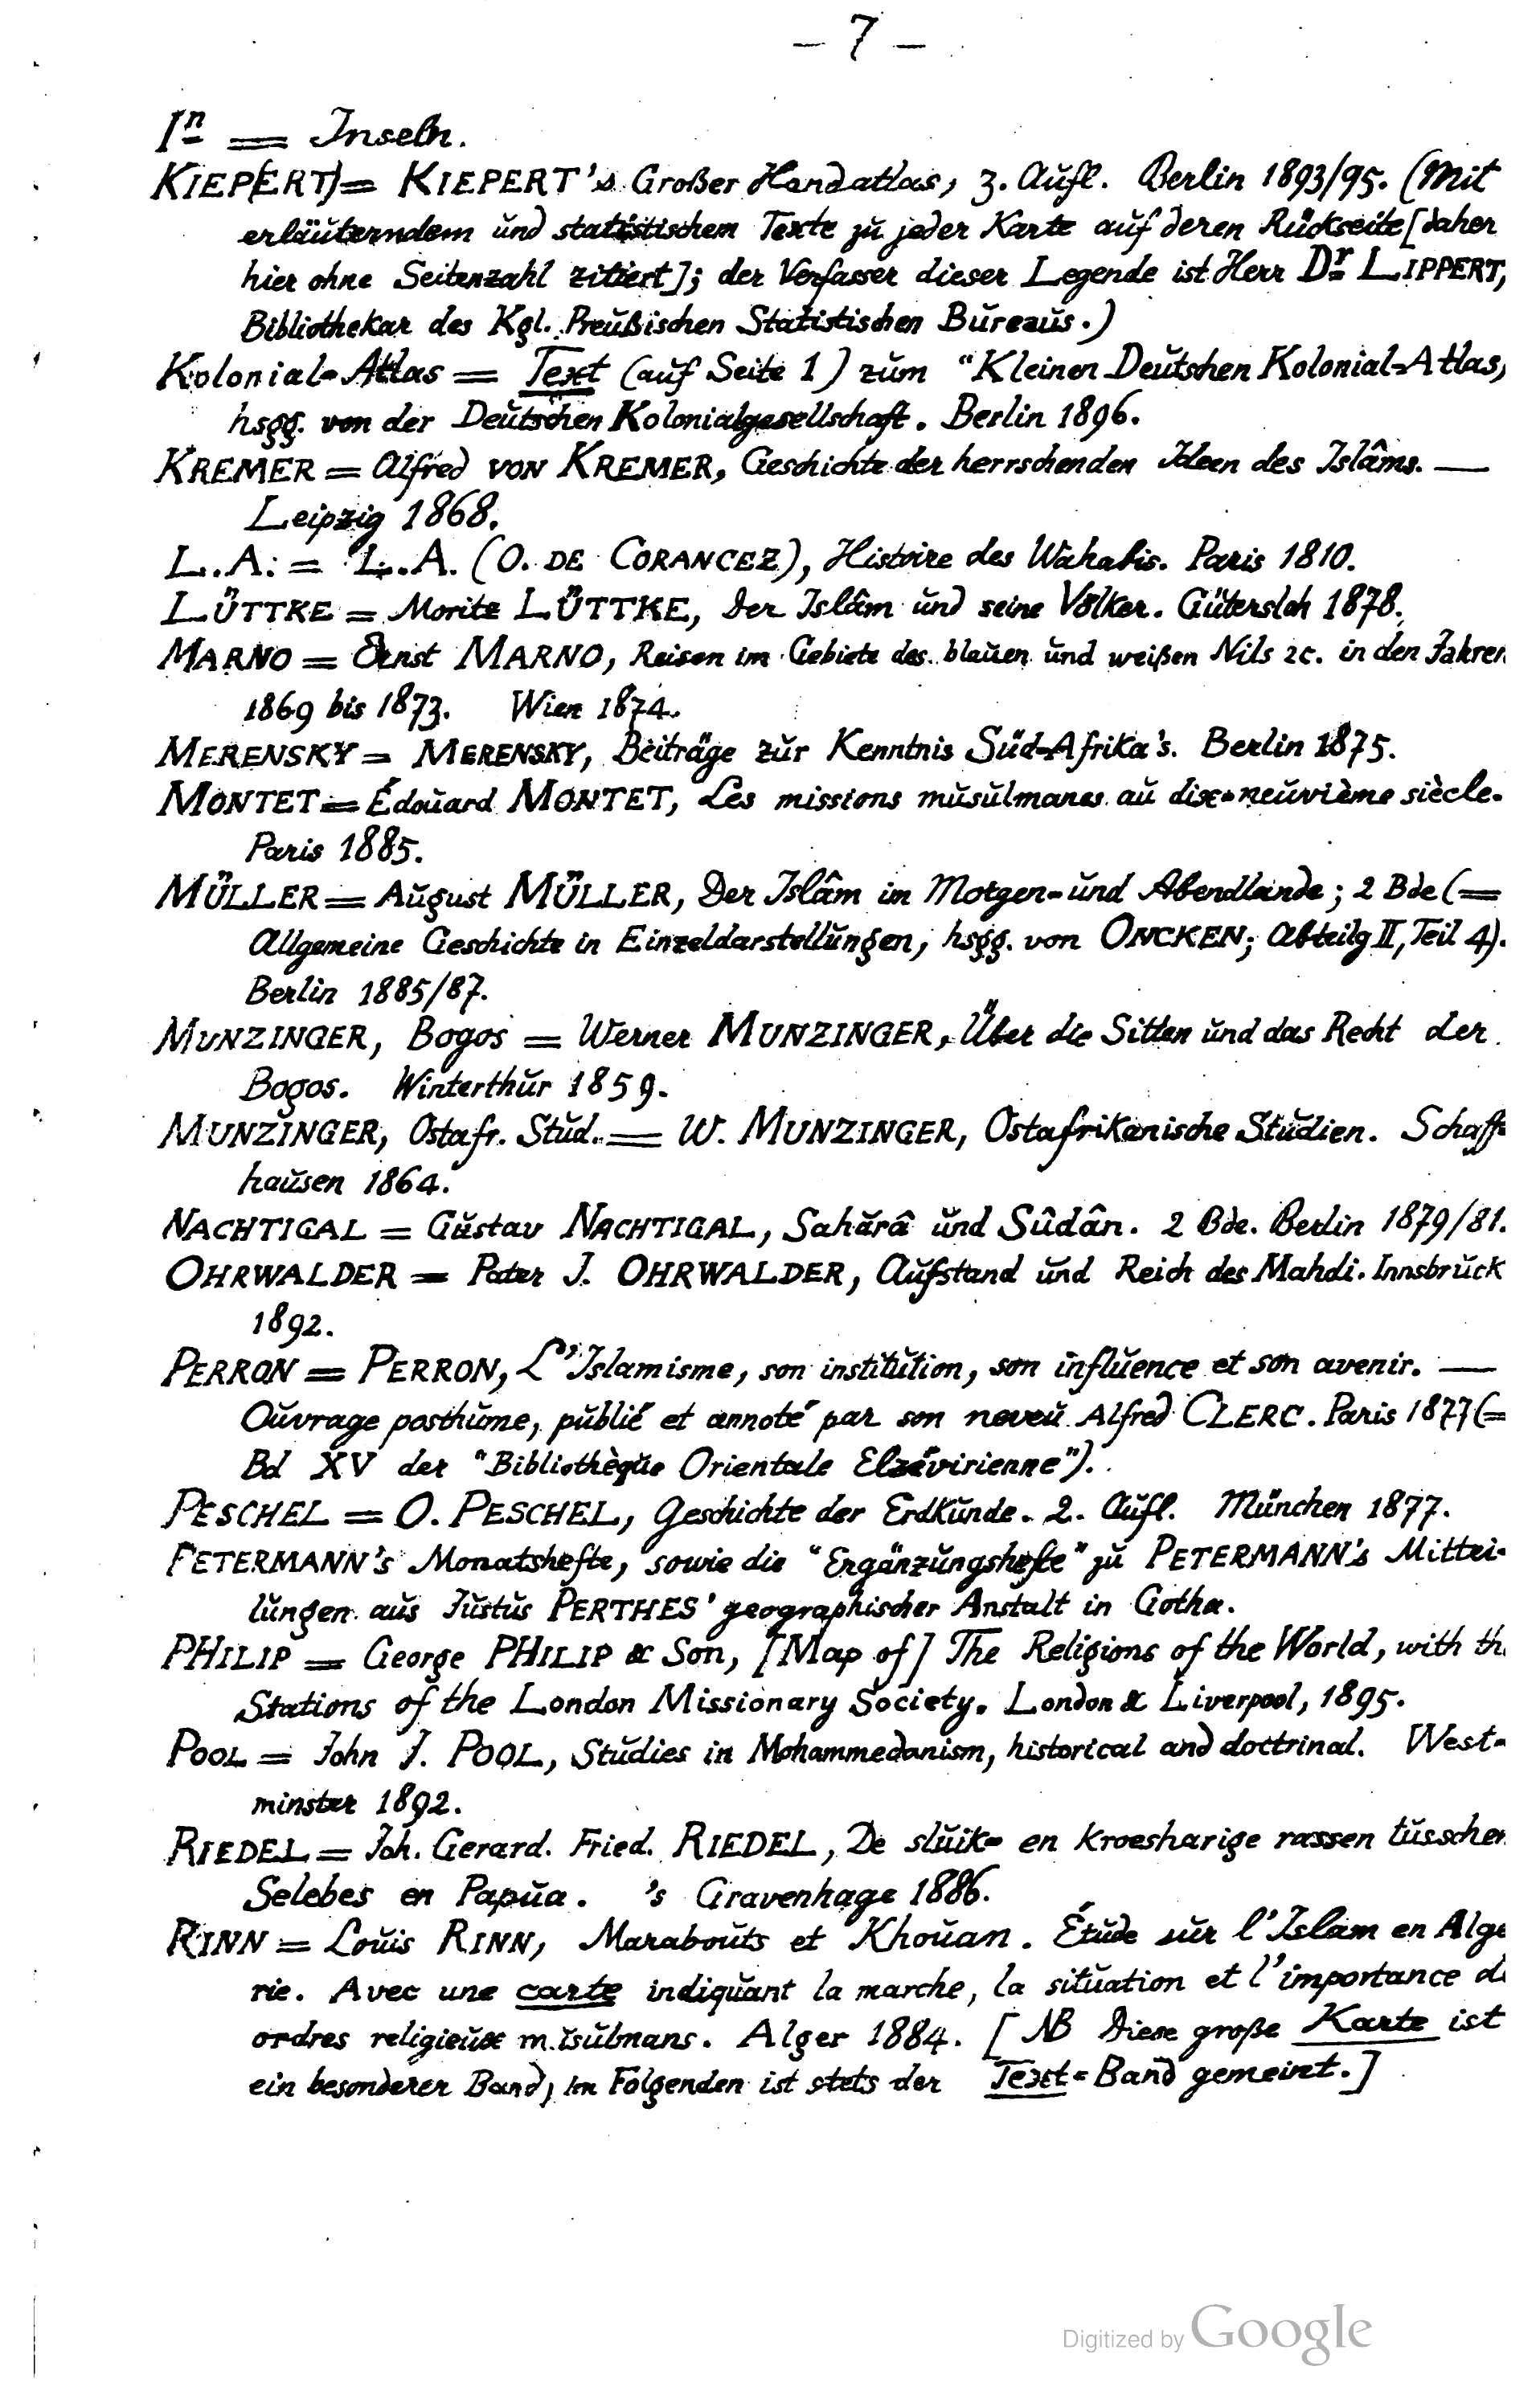 – 7 –
In = Inseln.
KIEP(ERT) = KIEPERT's Großer Handatlas, 3. Aufl. Berlin 1893/95. (Mit
erläuterndem und statistischem Texte zu jeder Karte auf deren Rückseite [daher
hier ohne Seitenzahl zitiert]; der Verfasser dieser Legende ist Herr Dr LIPPERT,
Bibliothekar des Kgl. Preußischen Statistischen Bureaus.)
Kolonial-Atlas = Text (auf Seite 1) zum "Kleinen Deutschen Kolonial-Atlas,
hsgg. von der Deutschen Kolonialgesellschaft. Berlin 1896.
KREMER = Alfred VON KREMER, Geschichte der herrschenden Ideen des Islâms. —
Leipzig 1868.
L.A. = L.A. (O. DE CORANCEZ), Histoire des Wahabis. Paris 1810.
LÜTTKE = Moritz LÜTTKE, Der Islâm und seine Völker. Gütersloh 1878.
MARNO = Ernst MARNO, Reisen im Gebiete des blauen und weißen Nils 2c. in den Jahren
1869 bis 1873. Wien 1874.
MERENSKY = MERENSKY, Beiträge zur Kenntnis Süd-Afrika's. Berlin 1875.
MONTET = Édouard MONTET, Les missions musulmanes au dix-neuvième siècle.
Paris 1885.
MÜLLER = August MÜLLER, Der Islâm im Morgen- und Abendlande; 2 Bde (=
Allgemeine Geschichte in Einzeldarstellungen, hsgg. von ONCKEN; Abteilg II, Teil 4).
Berlin 1885/87.
MUNZINGER, Bogos = Werner MUNZINGER, Über die Sitten und das Recht der
Bogos. Winterthur 1859.
MUNZINGER, Ostafr. Stud. = W. MUNZINGER, Ostafrikanische Studien. Schaff-
hausen 1864.
NACHTIGAL = Gustav NACHTIGAL, Sahărâ und Sûdân. 2 Bde. Berlin 1879/81.
OHRWALDER = Pater J. OHRWALDER, Aufstand und Reich des Mahdi. Innsbruck
1892.
PERRON = PERRON, L'Islamisme, son institution, son influence et son avenir. —
Ouvrage posthume, publié et annoté par son neveu Alfred CLERC. Paris 1877 (=
Bd XV der "Bibliothèque Orientale Elzévirienne").
PESCHEL = O. PESCHEL, Geschichte der Erdkunde. 2. Aufl. München 1877.
PETERMANN's Monatshefte, sowie die "Ergänzungshefte" zu PETERMANN's Mittei-
lungen aus Justus PERTHES' geographischer Anstalt in Gotha.
PHILIP = George PHILIP & Son, [Map of] The Religions of the World, with th
Stations of the London Missionary Society. London & Liverpool, 1895.
POOL = John J. POOL, Studies in Mohammedanism, historical and doctrinal. West-
minster 1892.
RIEDEL = Joh. Gerard. Fried. RIEDEL, De sluik- en kroesharige rassen tusschen
Selebes en Papua. 's Gravenhage 1886.
RINN = Louis RINN, Marabouts et Khouan. Étude sur l'Islâm en Algé
rie. Avec une carte indiquant la marche, la situation et l'importance d
ordres religieux musulmans. Alger 1884. [NB Diese große Karte ist
ein besonderer Band; im Folgenden ist stets der Text-Band gemeint.]
Digitized by Google